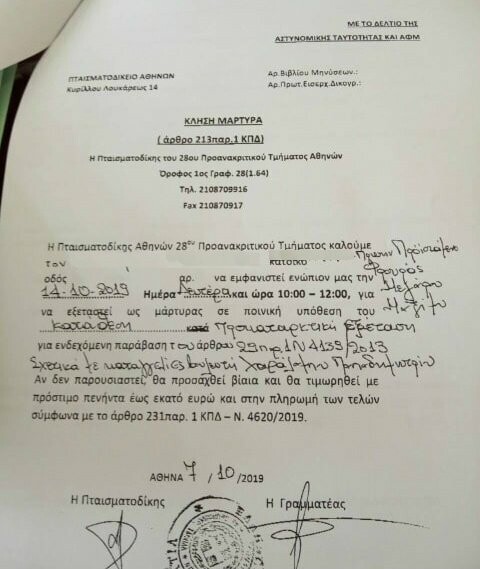 ΜΕ ΤΟ ΔΕΛΤΙΟ ΤΗΣ
ΑΣΤΥΝΟΜΙΚΗΣ ΤΑΥΤΟΤΗΤΑΣ ΚΑΙ ΑΦΜ
ΠΤΑΙΣΜΑΤΟΔΙΚΕΙΟ ΑΘΗΝΩΝ
Κυρίλλου Λουκάρεως 14
Αρ.Βιβλίου Μηνύσεων.:
Αρ.Πρωτ.Εισερχ.Δικογρ.:
ΚΛΗΣΗ ΜΑΡΤΥΡΑ
( άρθρο 213παρ.1 ΚΠΔ)
Η Πταισματοδίκης του 28ου Προανακριτικού Τμήματος Αθηνών
Όροφος 1ος Γραφ. 28(1.64)
Τηλ. 2108709916
Fax 210870917
Η Πταισματοδίκης Αθηνών 28ου Προανακριτικού Τμήματος καλούμε
τον κάτοικο πρώην Προϊστάμενο
οδός αρ. να εμφανιστεί ενώπιον μας την Φρουράς
14-10-2019 Ημέρα Δευτέρα και ώρα 10:00 – 12:00, για Μεγάρου
να εξεταστεί ως μάρτυρας σε ποινική υπόθεση του Μαξίμου
κατάθεση κατά Προκαταρκτική εξέταση
για ενδεχόμενη παράβαση του άρθρου 29παρ.1 Ν 4139/2013
Σχετικά με καταγγελίες βουλευτή Χαράλαμπου
Αν δεν παρουσιαστεί θα προσαχθεί βίαια και θα τιμωρηθεί με
πρόστιμο πενήντα έως εκατό ευρώ και στην πληρωμή των τελών
σύμφωνα με το άρθρο 231παρ. 1 ΚΠΔ – Ν. 4620/2019.
ΑΘΗΝΑ 7 / 10 /2019
Η Πταισματοδίκης Η Γραμματέας